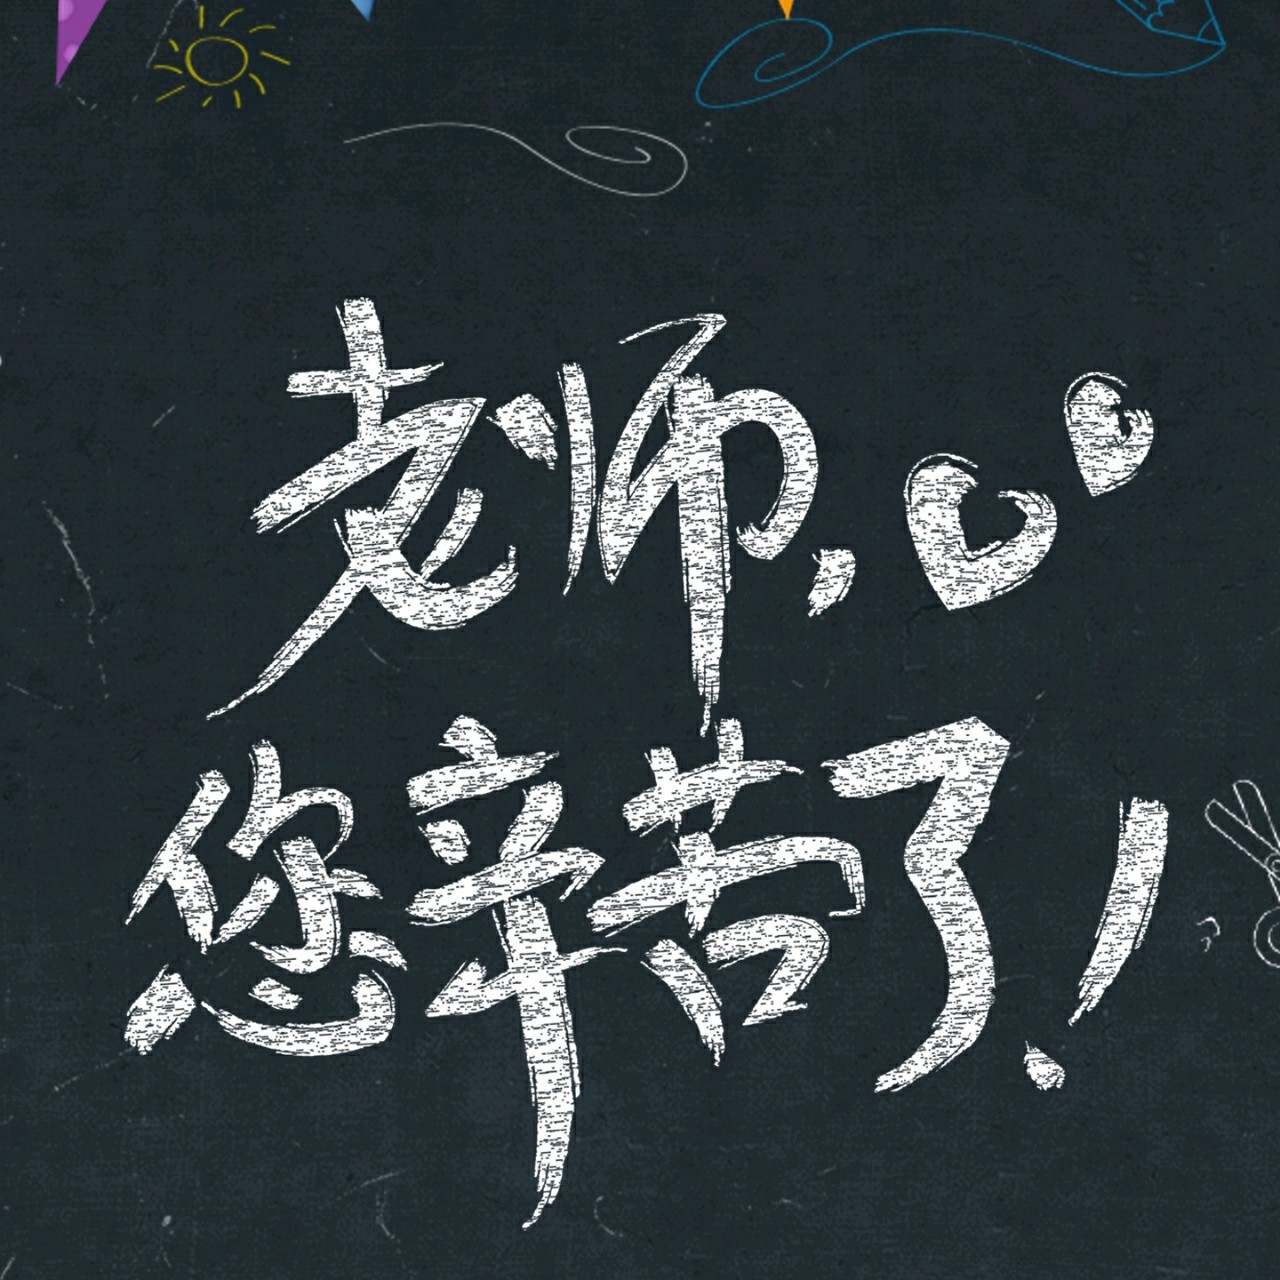 老师,
您辛苦了!